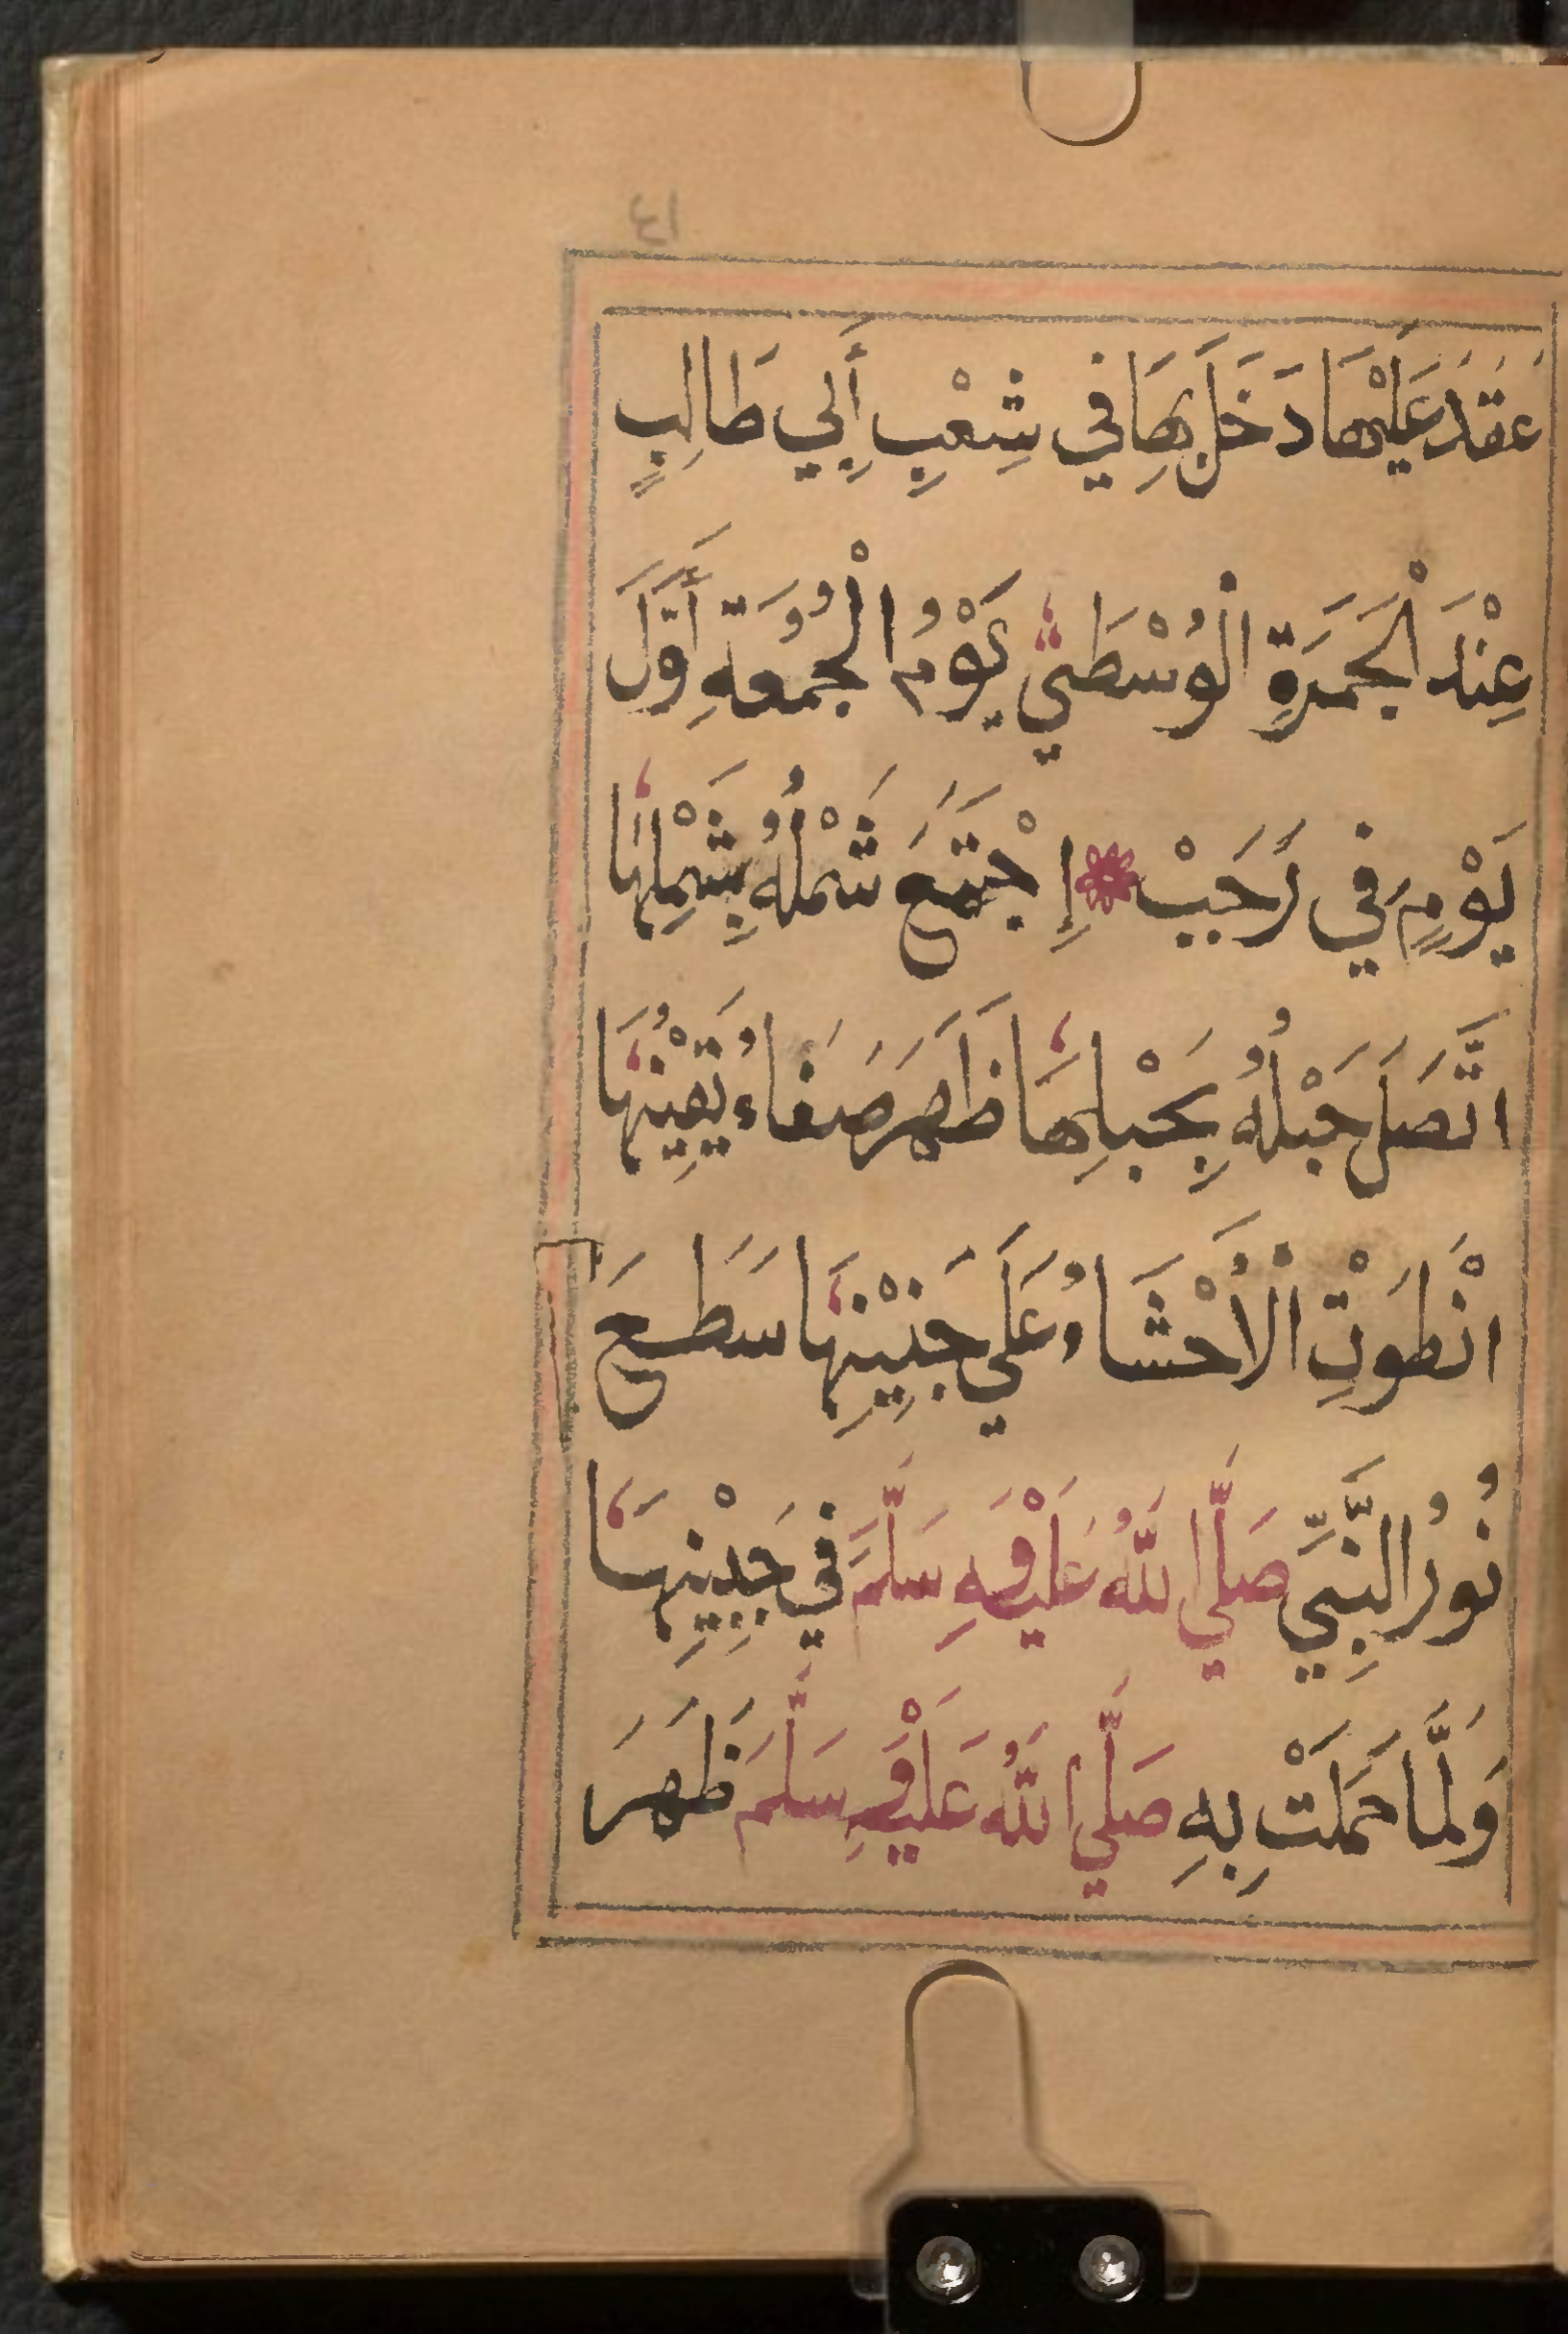 ١٤
عَقَدَ عَلَيْهَا دَخَلَ بِهَا فِي شِعْبِ أَبِي طَالِبٍ
عِنْدَ الْجَمَرَةِ الْوُسْطَي يَوْمُ الْجُمُعَةِ أَوَّلَ
يَوْمٍ فِي رَجَبْ إِجْتَمَعَ شَمْلُهُ بِشَمْلِهَا
اتَّصَلَ حَبْلُهُ بِحَبْلِهَا ظَهَرَ صَفَاءُ يَقِيْنِهَا
انْطَوَتِ الْأَحْشَاءُ عَلَي جَنِيْنِهَا سَطَعَ
نُورُ النَّبِيِّ صَلَّي اللهُ عَلَيْهِ وَسَلَّمَ فِي جَبِيْنِهَا
وَلَمَّا حَمَلَتْ بِهِ صَلَّي اللهُ عَلَيْهِ وَسَلَّمَ ظَهَرَ